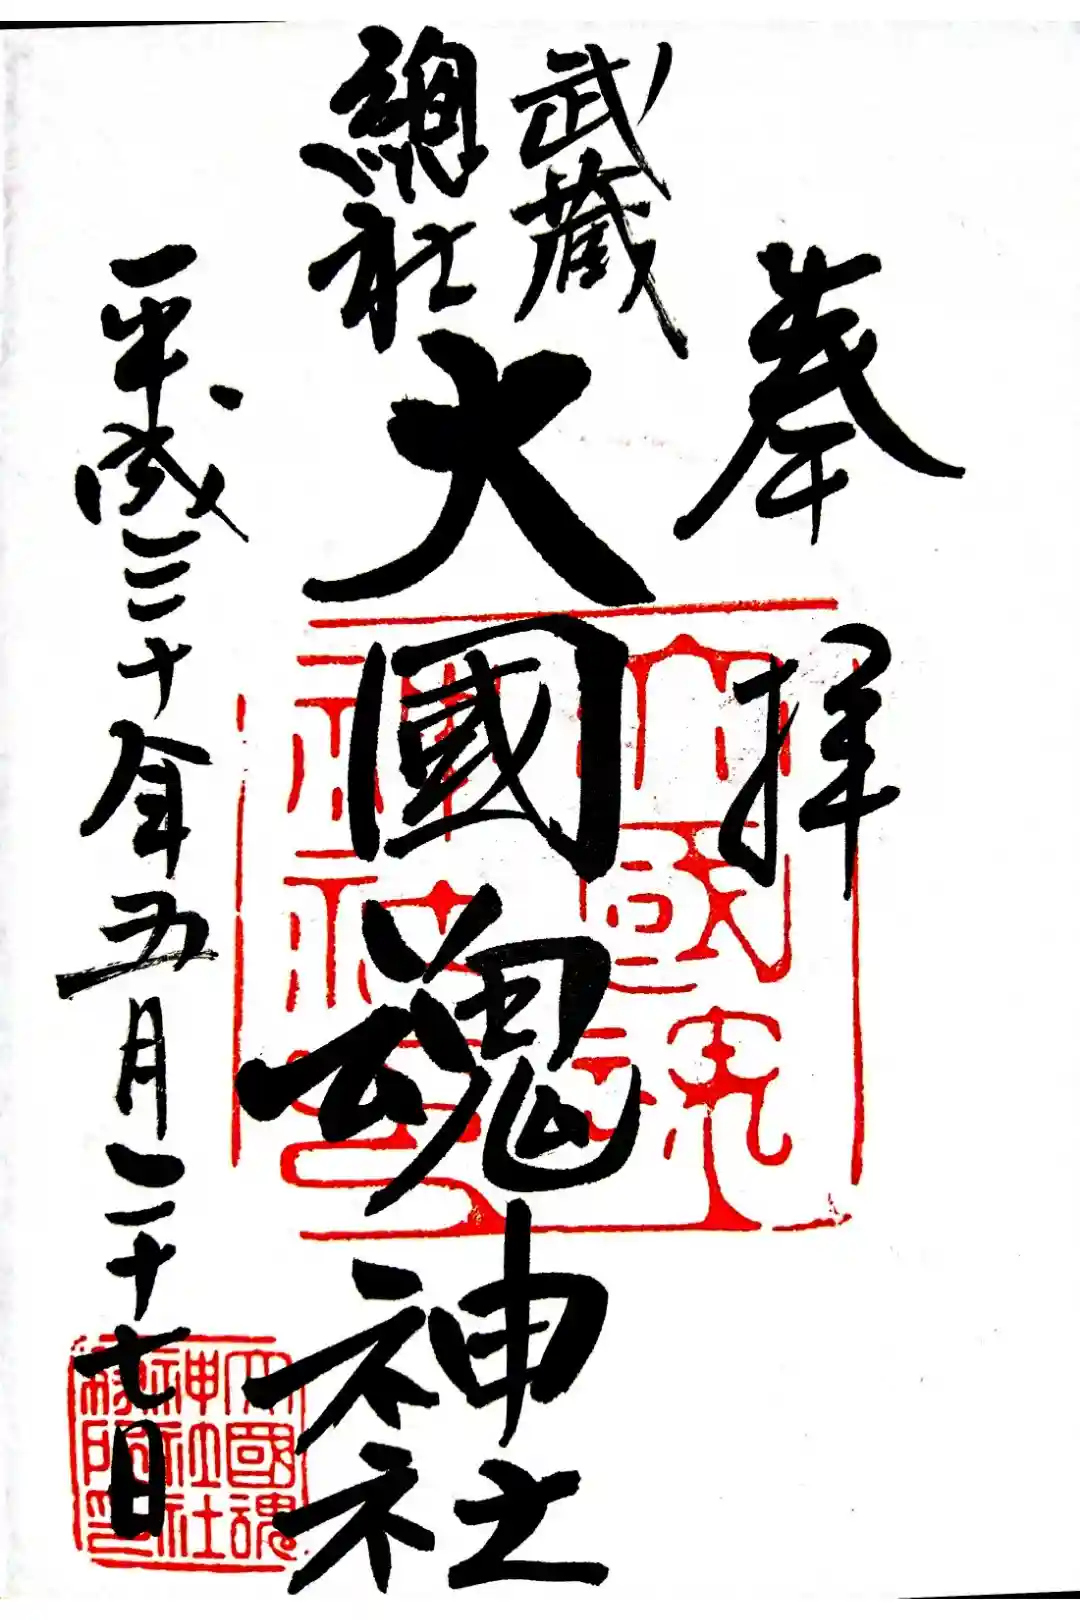 奉拝
武蔵
總社
大國魂神社
平成三十年五月二十七日
大國魂
神社印
大國魂
神社社
務所印